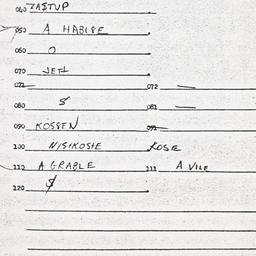 040 ZASTUP
050 A HABLSE
060 O
070 JEH
072 072 —
080 S 082 —
090 KOSSEN 092
100 NISIKOSIE ROSE
112 A GRABLE 111 A VILE
120 $